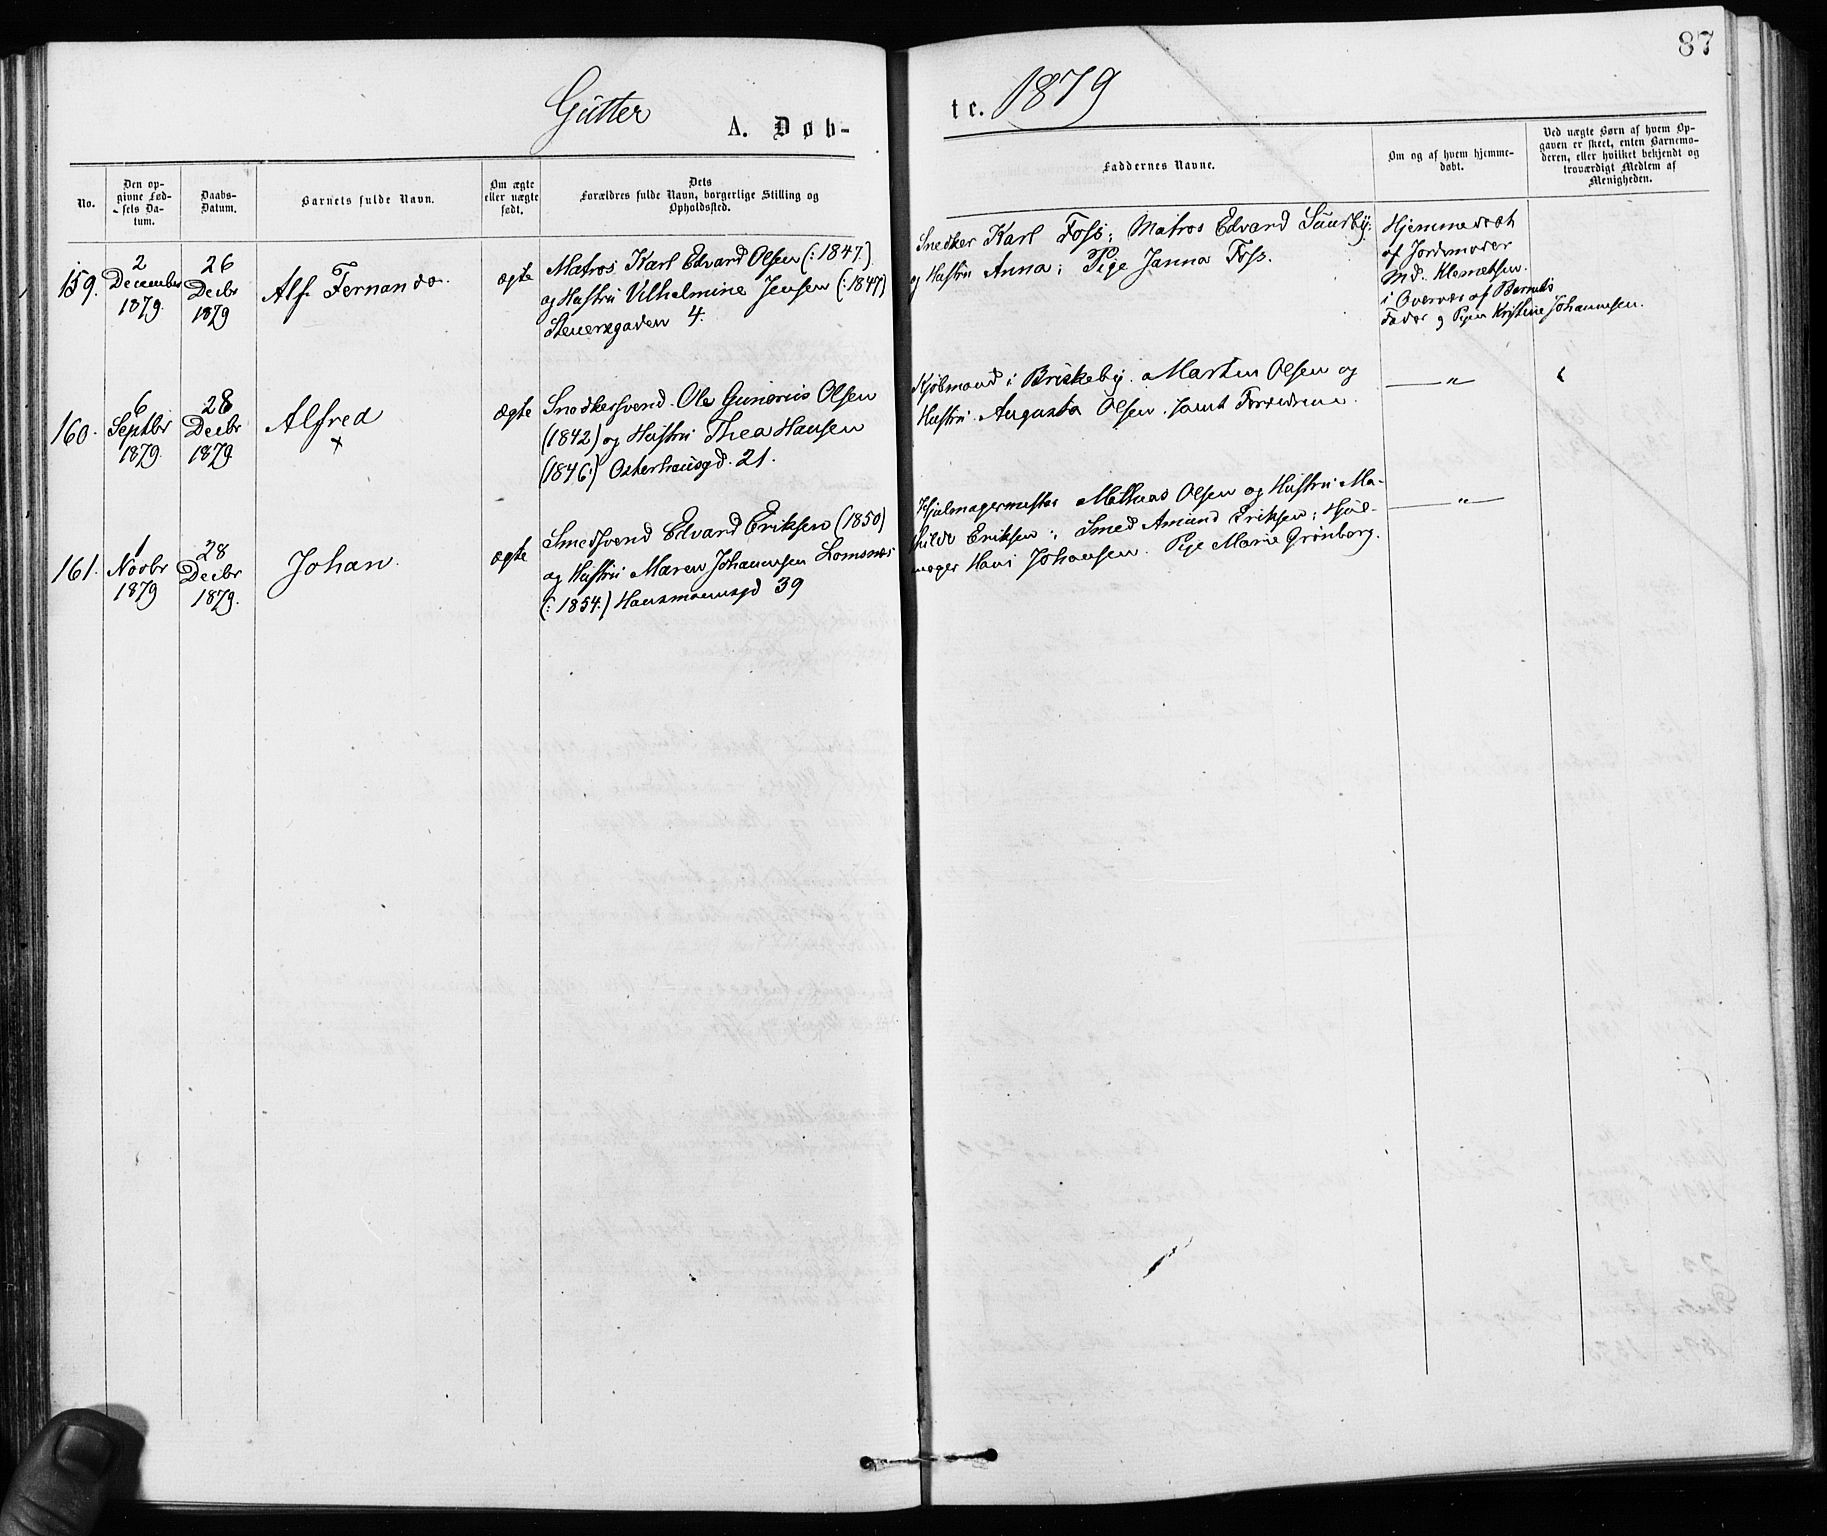 87
Gutter
A. Døb-
te. 1879
No.
Den op-
givne Fød-
sels Da-
tum.
Daabs-
Datum.
Barnets fulde Navn.
Om ægte
eller uægte
født.
Dets
Forældres fulde Navn, borgerlige Stilling og
Opholdssted.
Faddernes Navne.
Om og af hvem hjemme-
døbt.
Ved uægte Børn af hvem Op-
gaven er skeet, enten Barnemo-
deren, eller hvilket bekjendt og
troværdigt Medlem af
Menigheden.
159.
2
December
1879.
26
Decbr
1879
Alf Fernando.
ægte
Matros Karl Edvard Olsen (:1847)
og Hustru Vilhelmine Jensen (:1847)
Stenersgaden 4.
Snedker Karl Foss; Matros Edvard
og Hustru Anna; Pige Janna Foss.
Hjemmedøbt
af Jordemoder
Md. Klemetsen
i Overvær af Barnets
Fader og Pigen Kristine Johannesen.
160.
6
Septbr
1879.
28
Decbr
1879.
Alfred
x
ægte
Snedkersvend Ole Gunerius Olsen
(1842) og Hustru Thea Hansen
(1846:) Osterhausgd. 21.
Kjøbmand i Briskeby Martin Olsen og
Hustru Augusta Olsen samt Forældrene.
— „ —
161.
1
Novbr
1879
28
Decbr
1879.
Johan.
ægte
Smedsvend Edvard Eriksen (1850)
og Hustru Maren Johannesen Lomsnæs
(:1854:) Hausmannsgd 39
Hjulmagermester Mathias Olsen og Hustru Ma-
thilde Eriksen; Smed Amund Eriksen; Hjul-
mager Hans Johansen. Pige Marie Grønborg.
— „ —